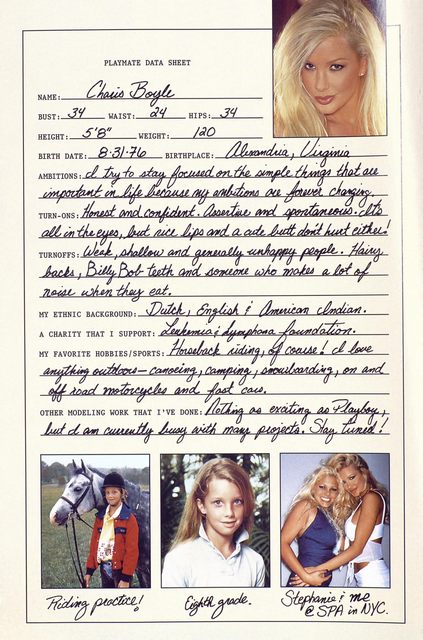 PLAYMATE DATA SHEET
NAME: Charis Boyle
BUST: 34 WAIST: 24 HIPS: 34
HEIGHT: 5'8" WEIGHT: 120
BIRTH DATE: 8·31·76 BIRTHPLACE: Alexandria, Virginia
AMBITIONS: I try to stay focused on the simple things that are
important in life because my ambitions are forever changing.
TURN-ONS: Honest and confident. Assertive and spontaneous. It's
all in the eyes, but nice lips and a cute butt don't hurt either!
TURNOFFS: Weak, shallow and generally unhappy people. Hairy
backs, Billy Bob teeth and someone who makes a lot of
noise when they eat.
MY ETHNIC BACKGROUND: Dutch, English & American Indian.
A CHARITY THAT I SUPPORT: Leukemia & Lymphoma foundation.
MY FAVORITE HOBBIES/SPORTS: Horseback riding, of course! I love
anything outdoors—canoeing, camping, snowboarding, on and
off road motorcycles and fast cars.
OTHER MODELING WORK THAT I'VE DONE: Nothing as exciting as Playboy,
but I am currently busy with many projects. Stay tuned!
Riding practice!
Eighth grade.
Stephanie & me
@ SPA in NYC.